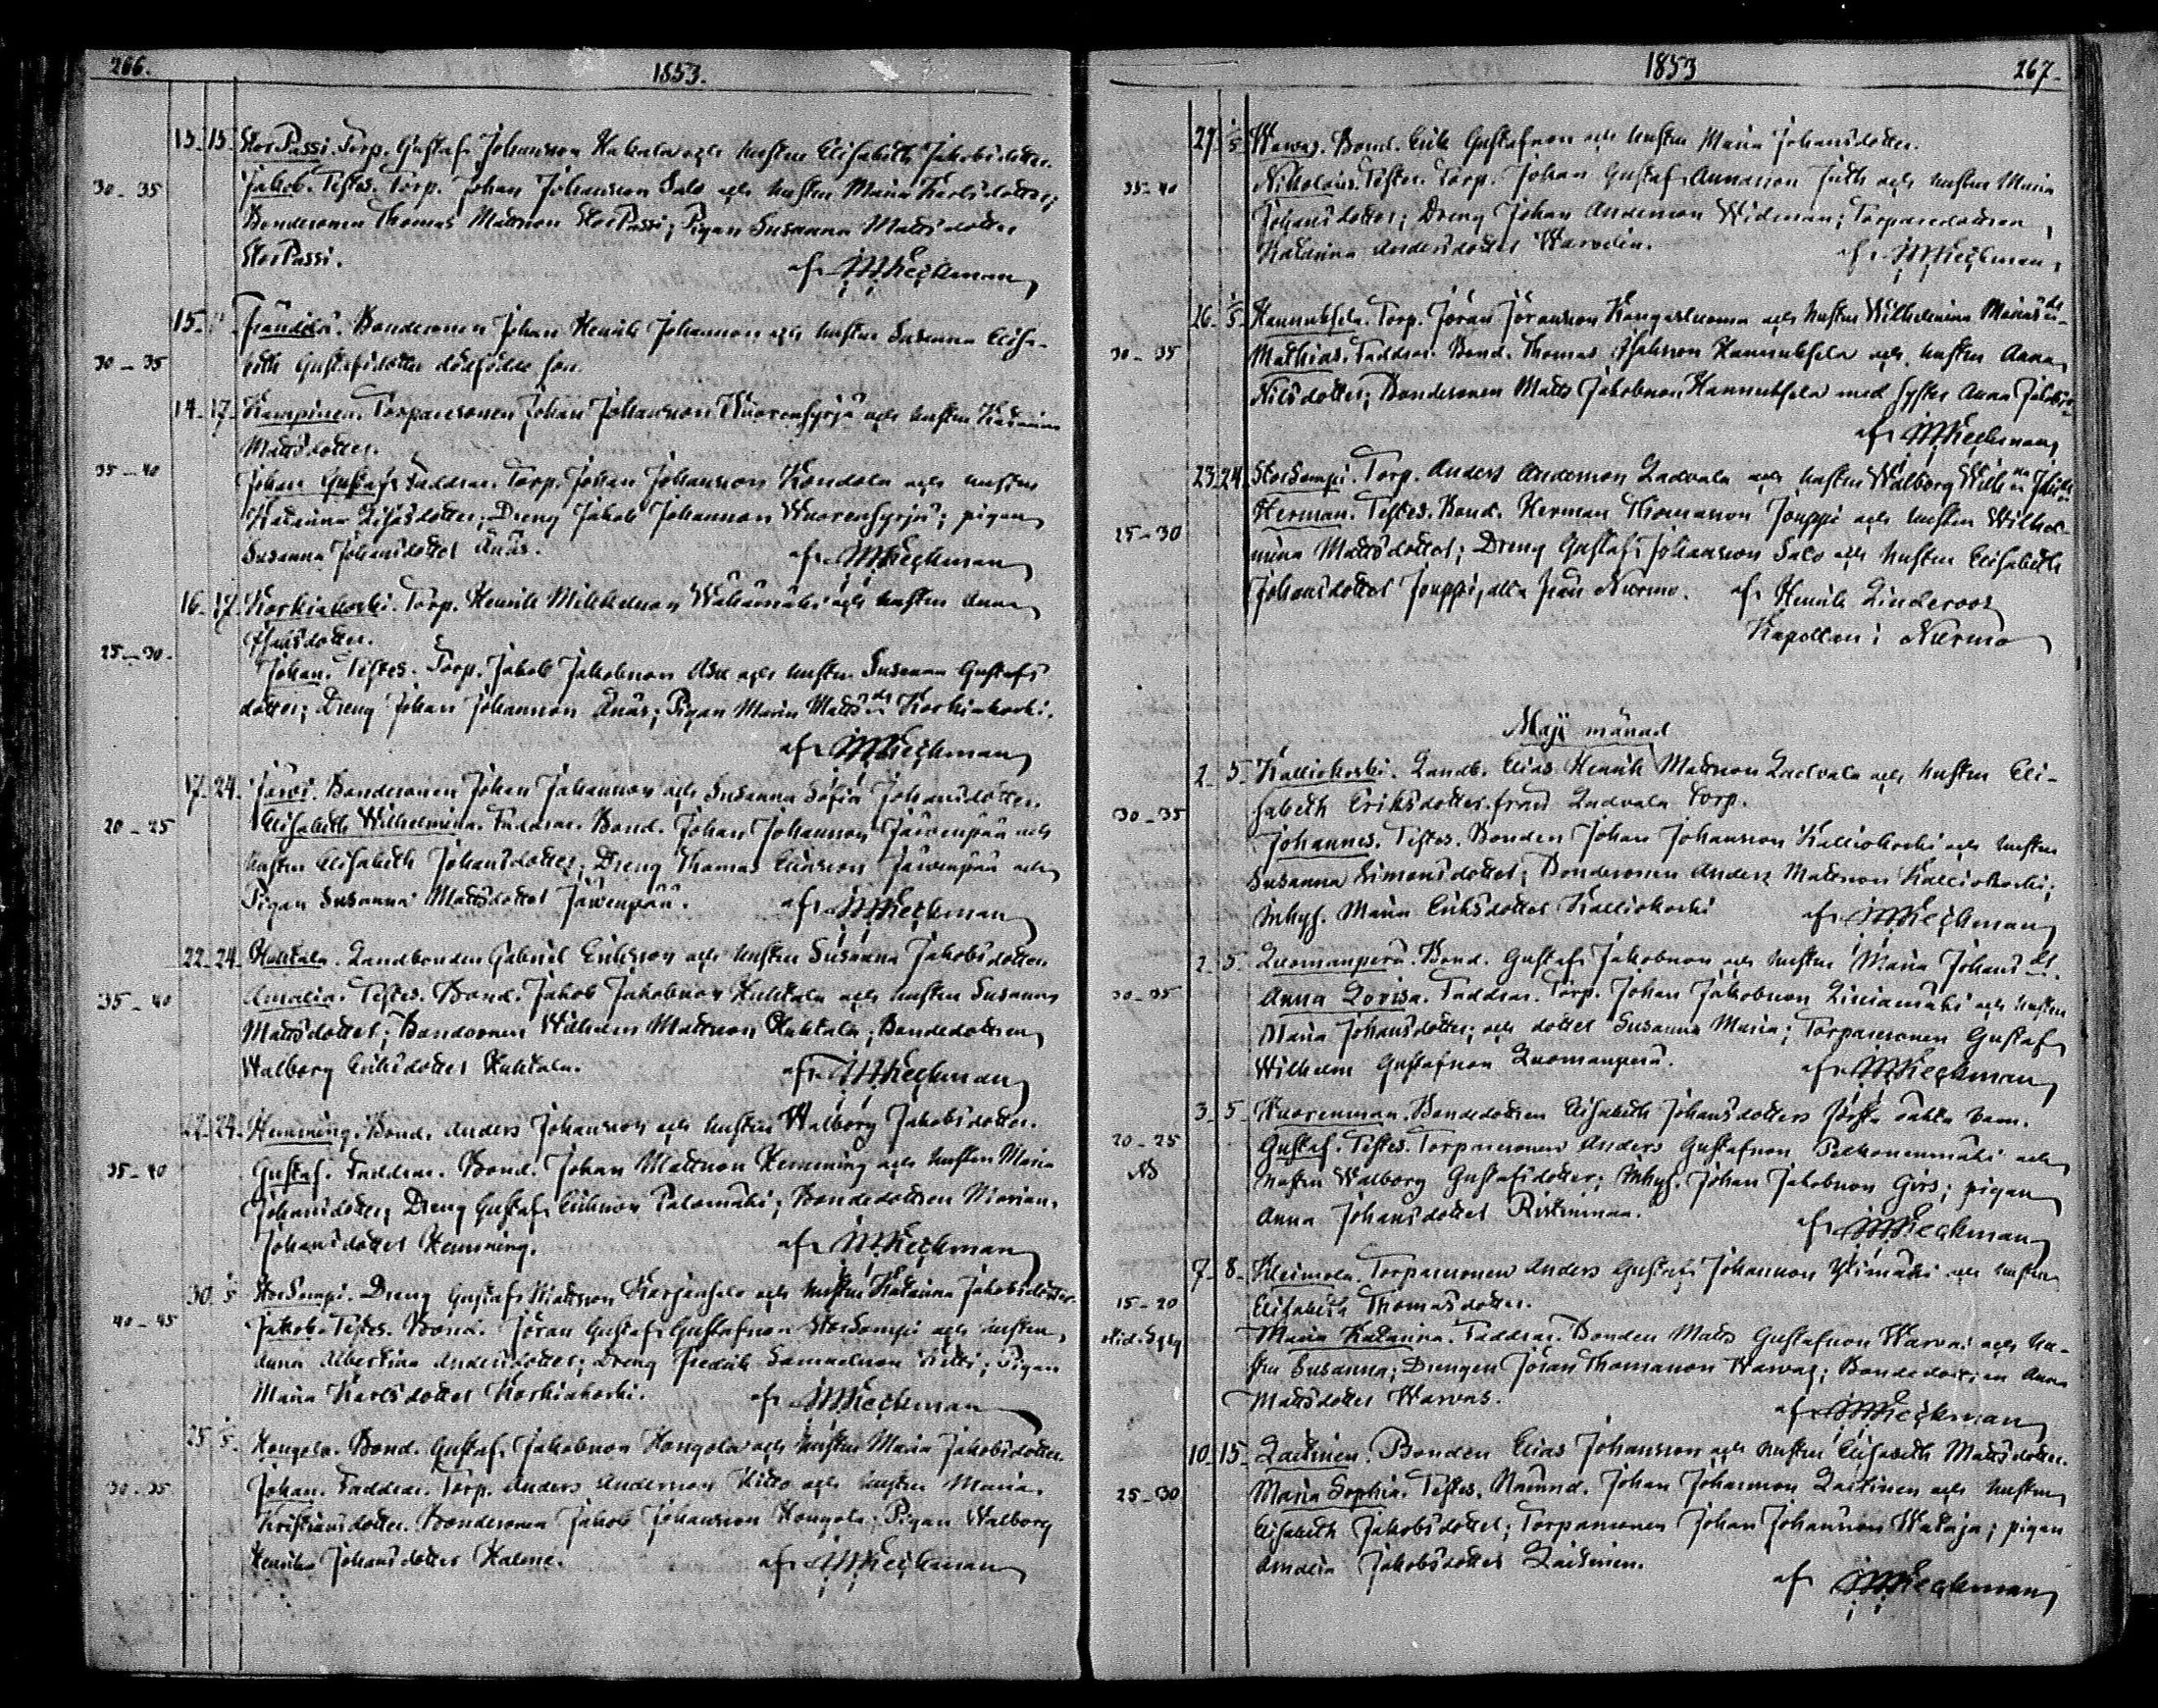 266.
1853.
13. 15. StorPassi. Torp. Gustaf Johansson Hakala och hustru Elisabeth Jakobsdotter.
30 – 35 Jakob. Testes. Torp. Johan Johansson Salo och hustru Maria Karlsdotter;
Bondesonen Thomas Mattsson StorPassi; Pigan Susanna Mattsdotter
StorPassi. af
15. Bondesonen Johan Henrik Johansson och hustru Susanna Elisa-
30 – 35 beth Gustafsdotter dödfödde son.
14. 17. Kampinen. Torparesonen Johan Johansson Wuorensyrjä och hustru Katarina
Mattsdotter.
35 – 40 Johan Gustaf. Faddrar. Torp. Johan Johansson Kondola och hustru
Katarina Elisdotter; Dreng Jakob Johansson Wuorensyrjä; pigan
Susanna Johansdotter Ånäs. af
16. 17. Korkiakoski. Torp. Henrik Mikkelsson Wähämäki och hustru Anna
Isaksdotter.
25 – 30. Johan. Testes. Torp. Jakob Jakobsson Ask och hustru Susanna Gustafs
dotter; Dreng Johan Johansson Ånäs; Pigan Maria Matts dr Korkiakoski.
af
17. 24. Järvi. Bondesonen Johan Johansson och Susanna Sofia Johansdotter.
20 – 25 Elisabeth Wilhelmina. Faddrar. Bond. Johan Johansson Järvenpää och
hustru Elisabeth Johansdotter; Dreng Thomas Eliasson Järvenpää och
Pigan Susanna Mattsdotter Järvenpää. af
22. 24. Huhtala. Landbonden Gabriel Eriksson och hustru Susanna Jakobsdotter.
35 – 40 Amalia. Testes. Bond. Jakob Jakobsson Huhtala och hustru Susanna
Mattsdotter; Bondesonen Wilhelm Mattsson Huhtala; Bondedottren
Walborg Eriksdotter Huhtala. af
22. 24. Hemming. Bond. Anders Johansson och hustru Walborg Jakobsdotter.
35 – 40 Gustaf. Faddrar. Bond. Johan Mattsson Hemming och hustru Maria
Johansdotter; Dreng Gustaf Eriksson Palomäki; Bondedottren Mariana
Johansdotter Hemming. af
30. 1/5 StorSompi. Dreng Gustaf Mattsson och hustru Katarina Jakobsdotter.
40 – 45 Jakob. Testes. Bond. Jöran Gustaf Gustafsson StorSompi och hustru
Anna Albertina Andersdotter; Dreng Fredrik Samuelsson; Pigan
Maria Karlsdotter Korkiakoski. af
25. 1/5. Hongola. Bond. Gustaf Jakobsson Hongola och hustru Maria Jakobsdotter.
30 – 35 Johan. Faddrar. Torp. Anders Andersson och hustru Maria
Kristiansdotter. Bondesonen Jakob Johansson Hongola; Pigan Walborg
Henrika Johansdotter Halme. af
1853
267.
27. 1/5 Warvas. Bond. Erik Gustafsson och hustru Maria Johansdotter.
35 – 40 Nikolaus. Testes. Torp. Johan Gustaf Annasson och hustru Maria
Johansdotter; Dreng Johan Andersson Widman; Torparedottren
Katarina Andersdotter Warvelin. af
26. 1/5. Hannuksela. Torp. Jöran Jöransson Kangasluoma och hustru Wilhelmina Matts dr
30 – 35 Mathias. Faddrar. Bond. Thomas Isaksson Hannuksela och hustru Anna
Nilsdotter; Bondesonen Matts Jakobsson Hannuksela med syster Anna Jakobs dr
af
23. 24. StorSompi. Torp. Anders Andersson Ladvala och hustru Walborg
25 – 30 Herman. Testes. Bond. Herman Thomasson Jouppi och hustru Wilhel-
mina Mattsdotter; Dreng Gustaf Johansson Salo och hustru Elisabeth
Johansdotter Jouppi, alla från Nurmo. af Henrik Linderoos
Kapellan i Nurmo
Maji månad
2. 5. Kalliokoski. Landb. Elias Henrik Mattsson Ladvala och hustru Eli-
30 – 35 sabeth Eriksdotter från Ladvala Torp.
Johannes. Testes. Bonden Johan Johansson Kalliokoski och hustru
Susanna Simonsdotter; Bondesonen Anders Mattsson Kalliokoski;
Inhys. Maria Eriksdotter Kalliokoski af
2. 5. Luomanperä. Bond. Gustaf Jakobsson och hustru Maria Johans dr.
30 – 35 Anna Lovisa. Faddrar. Torp. Johan Jakobsson Liinamäki och hustru
Maria Johansdotter; och dotter Susanna Maria; Torparesonen Gustaf
Wilhelm Gustafsson Luomanperä. af
3. 5. Wuorenmaa. Bondedottren Elisabeth Johansdotters första oäkta barn.
20 – 25 Gustaf. Testes. Torparesonen Anders Gustafsson Pelkonenmäki och
hustru Walborg Gustafsdotter; Inhys. Johan Jakobsson Girs; pigan
Anna Johansdotter Ristiniman. af
7. 8. Heimola. Torparesonen Anders Gustaf Johansson Ylimäki och hustru
15 – 20 Elisabeth Thomasdotter.
Maria Katarina. Faddrar. Bonden Matts Gustafsson Warvas och hu-
stru Susanna; Drengen Jöran Thomasson Warvas; Bondedottren Anna
Mattsdotter Warvas. af
10. 15. Laitinen. Bonden Elias Johansson och hustru Elisabeth Mattsdotter.
25 – 30 Maria Sophia. Testes. Nämnd. Johan Johansson Laitinen och hustru
Elisabeth Jakobsdotter; Torparesonen Johan Johansson Wataja; pigan
Amalia Jakobsdotter Laitinen. af